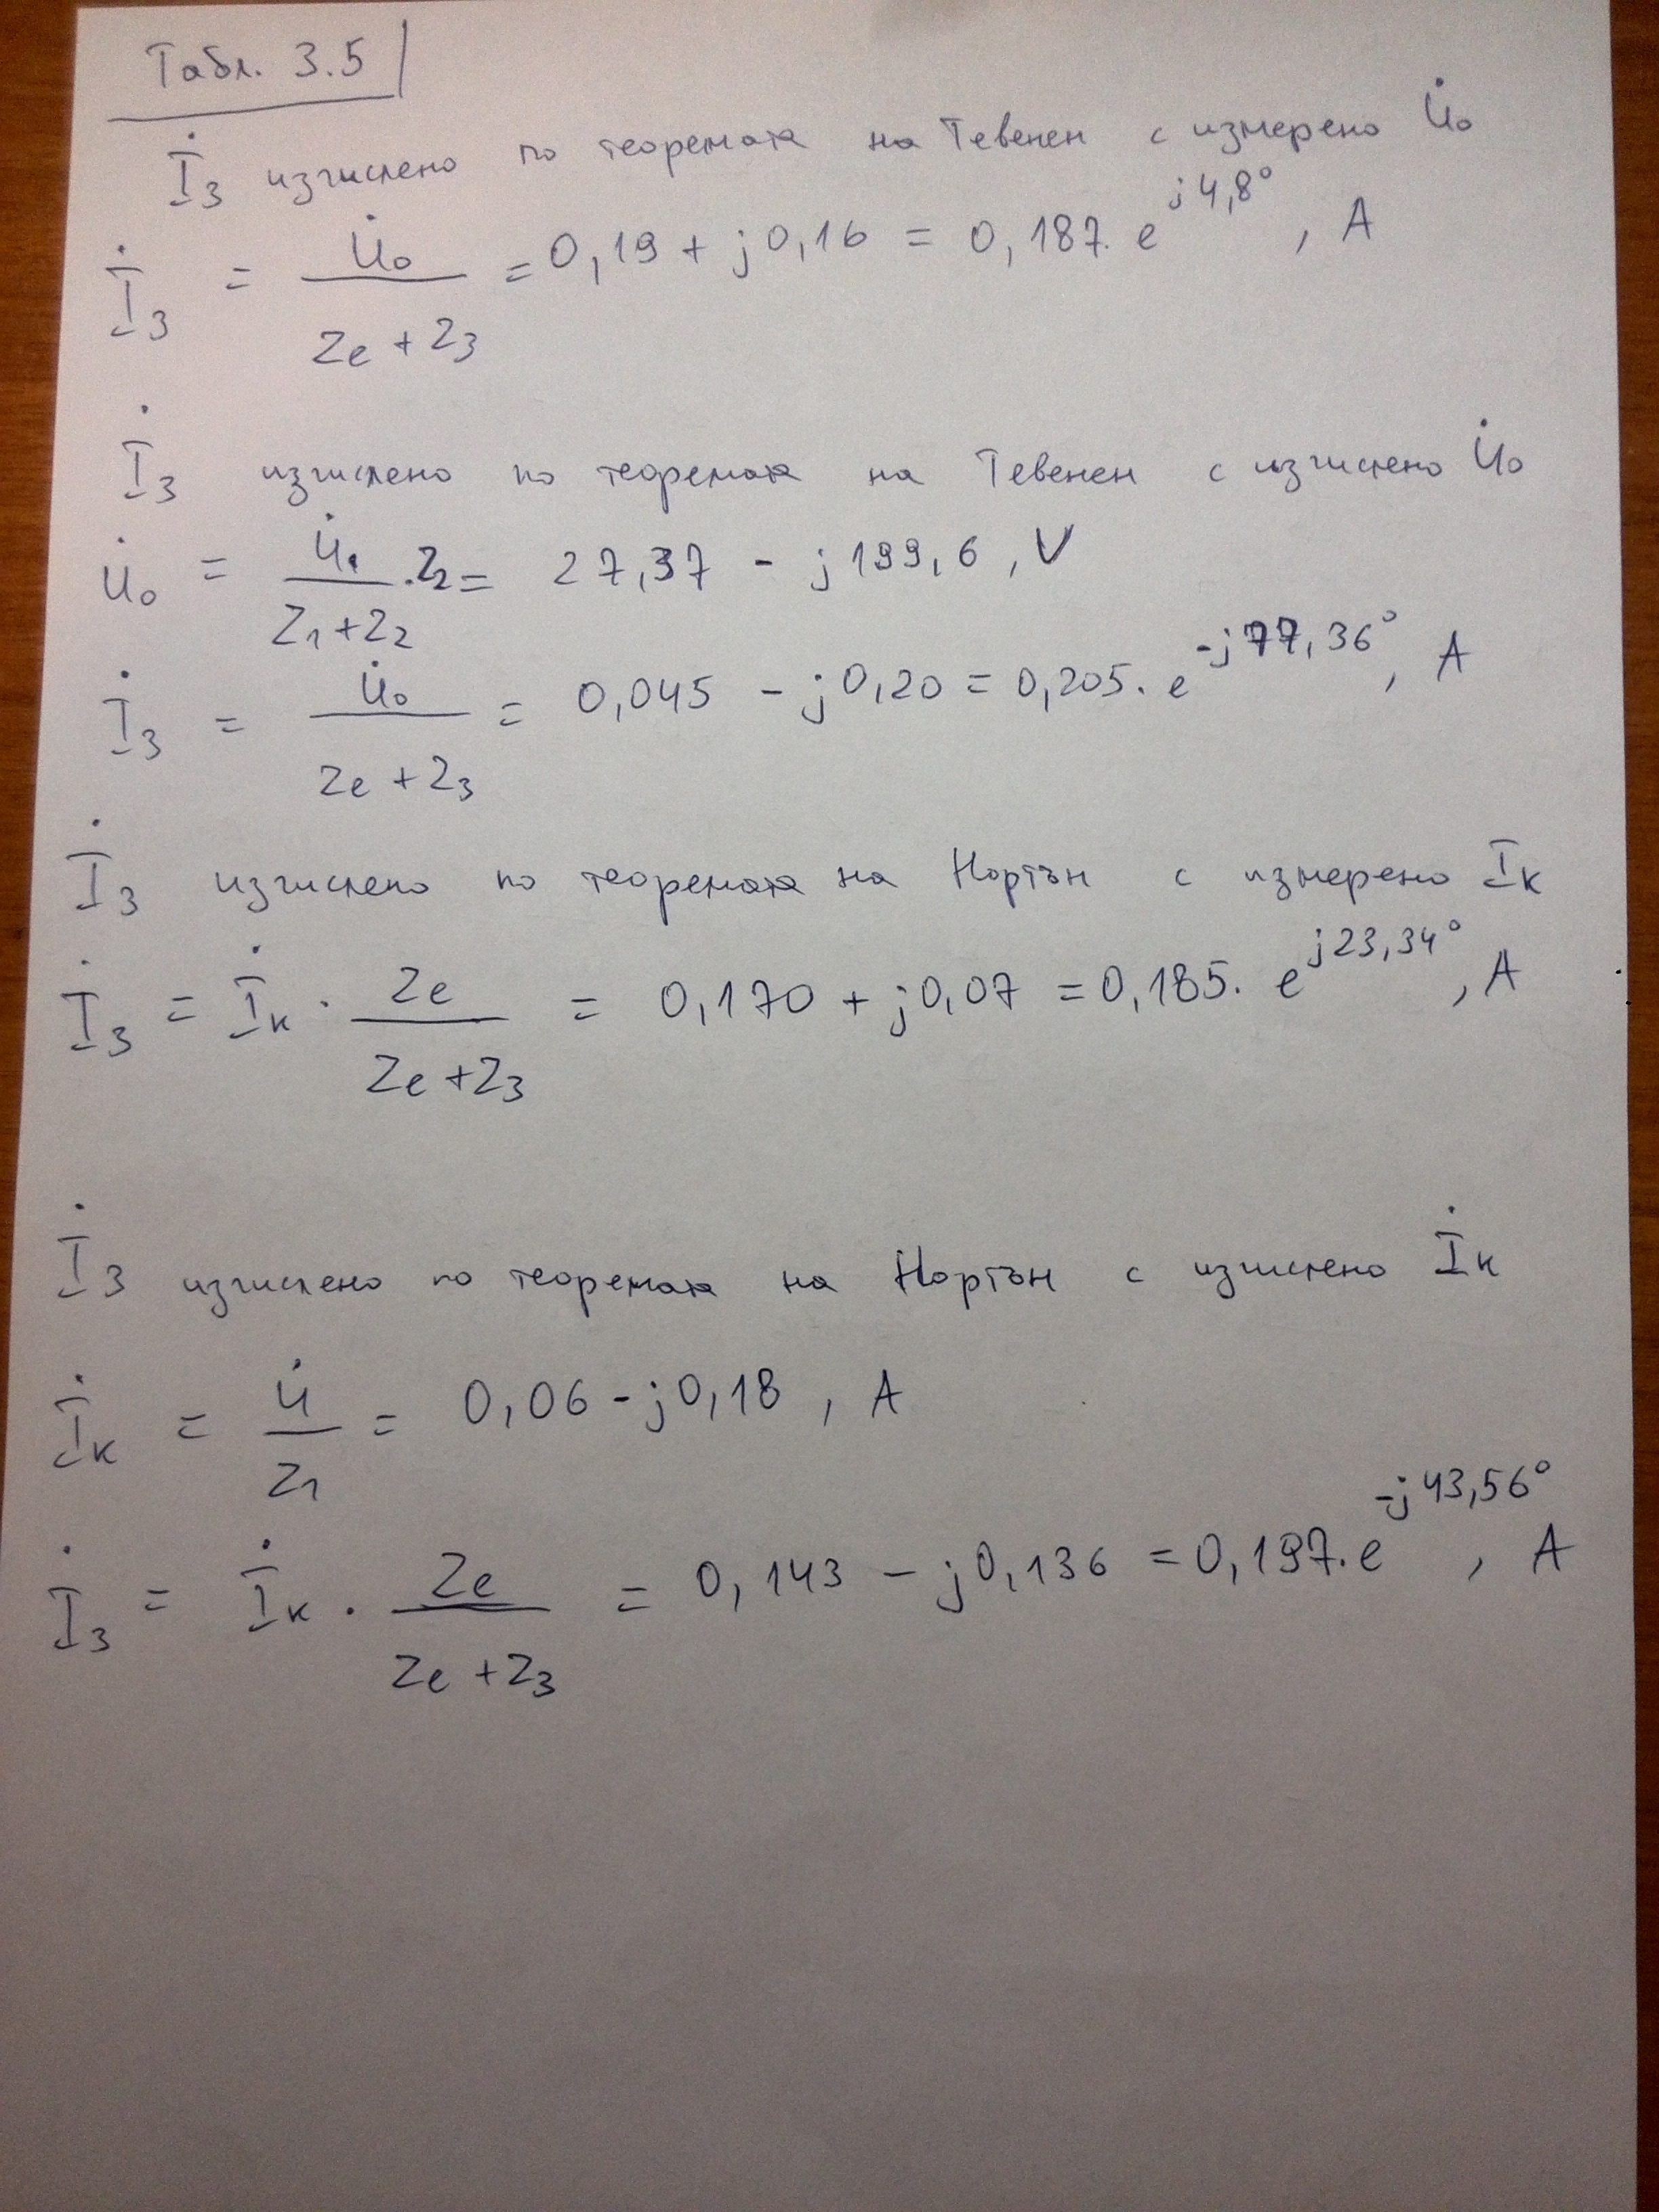 Табл. 3.5
İ₃ изчислено по теоремата на Тевенен с измерено U̇₀
İ₃ = U̇₀ / (Ze + Z₃) = 0,19 + j0,16 = 0,187. e^(j4,8°), A
İ₃ изчислено по теоремата на Тевенен с изчислено U̇₀
U̇₀ = U̇₁ / (Z₁ + Z₂) . Z₂ = 27,37 - j199,6, V
İ₃ = U̇₀ / (Ze + Z₃) = 0,045 - j0,20 = 0,205. e^(-j77,36°), A
İ₃ изчислено по теоремата на Нортън с измерено Iк
İ₃ = İк . Ze / (Ze + Z₃) = 0,170 + j0,07 = 0,185. e^(j23,34°), A
İ₃ изчислено по теоремата на Нортън с изчислено İк
İк = U̇ / Z₁ = 0,06 - j0,18, A
İ₃ = İк . Ze / (Ze + Z₃) = 0,143 - j0,136 = 0,197. e^(-j43,56°), A